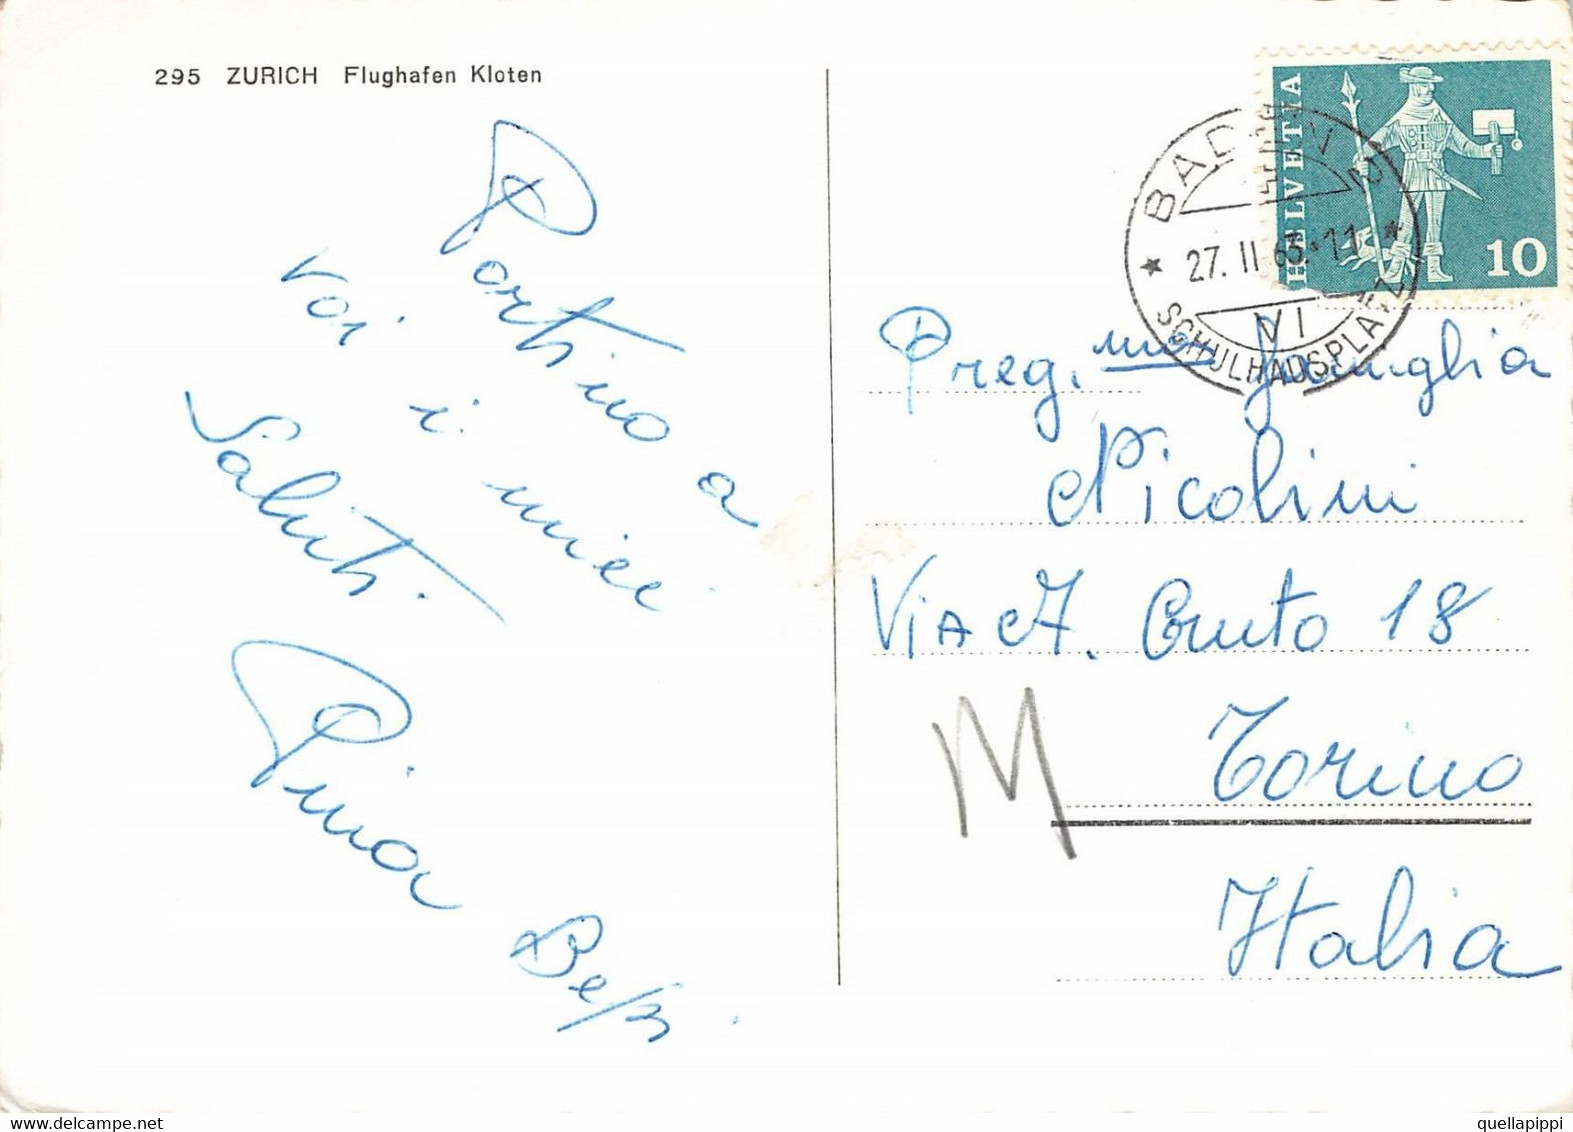 295 ZURICH Flughafen Kloten
Portino a
voi i miei
Saluti.
Pina
Beppi.
HELVETIA
10
BADEN 2
27. II 63.-11
VI
SCHULHAUSPLATZ
Preg. ma Famiglia
Nicolini
Via A. Cruto 18
M
Torino
Italia
delcampe.net
quellapippi